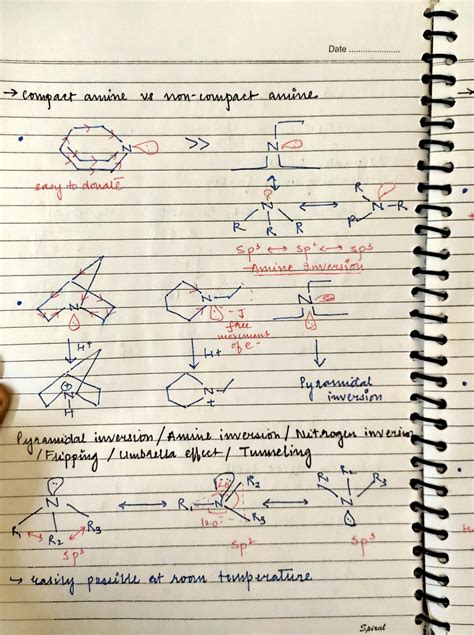 Date ........................
→ Compact amine vs non-compact amine
N >> N
easy to donate
N ↔ N
R R R R R
sp³ ↔ sp² ↔ sp³
Amine Inversion
N N N
free
movement
of e⁻
H⁺ H⁺
N H N +
Pyramidal
inversion
Pyramidal inversion / Amine inversion / Nitrogen inversion
/ Flipping / Umbrella effect / Tunneling
N ↔ R₁ N R₂ ↔ R₂ N
R₁ R₂ R₃ 120 R₃
sp³ sp² sp³
→ easily possible at room temperature
Spiral